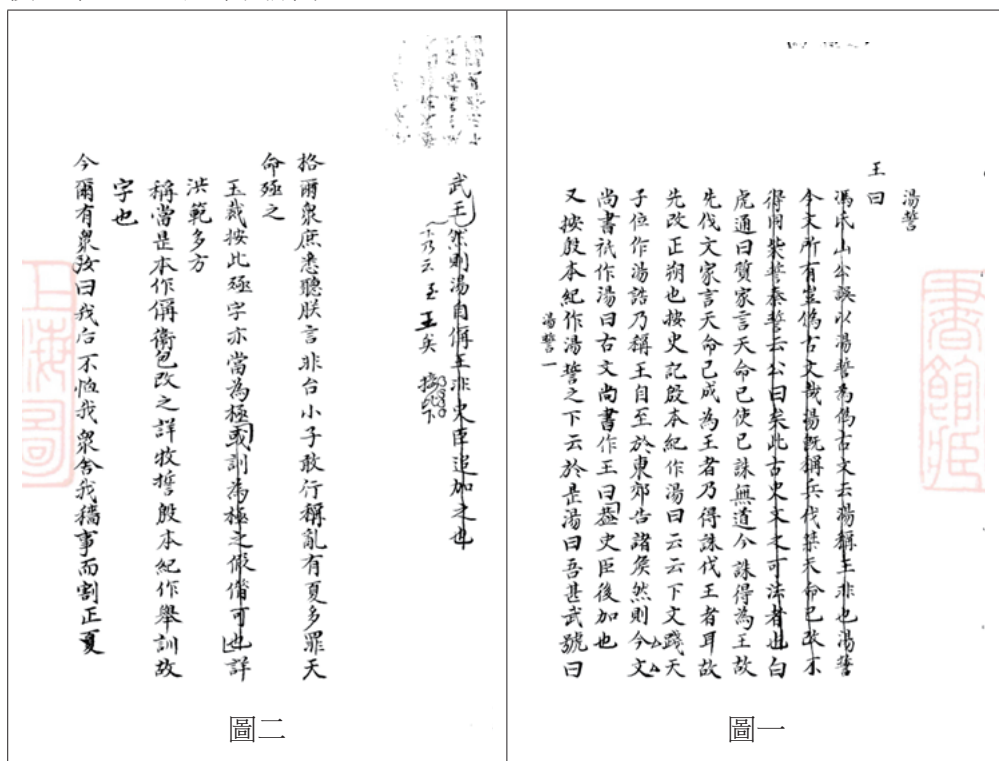 湯誓
王曰
馮氏山公誤以湯誓為偽古文云湯稱王非也湯誓
今文所有豈偽古文哉湯既稱兵伐桀天命已改不
得用柴誓泰誓云公曰矣此古史文之可法者也白
虎通曰質家言天命已使已誅無道今誅得為王故
先伐文家言天命已成為王者乃得誅伐王者耳故
先改正朔也按史記殷本紀作湯曰云云下文踐天
子位作湯誥乃稱王自至於東郊告諸矦然則今文
尚書衹作湯曰古文尚書作王曰葢史臣後加也
又按殷本紀作湯誓之下云於是湯曰吾甚武號曰
湯誓一
武王然則湯自偁王非史臣追加之也
下乃云
王矣
格爾衆庶悉聽朕言非台小子敢行稱亂有夏多罪天
命殛之
玉裁按此殛字亦當為極或訓為極之假借可也詳
洪範多方
稱當是本作偁衞包改之詳牧誓殷本紀作舉訓故
字也
今爾有衆汝曰我后不恤我衆舍我穡事而割正夏
圖二
圖一